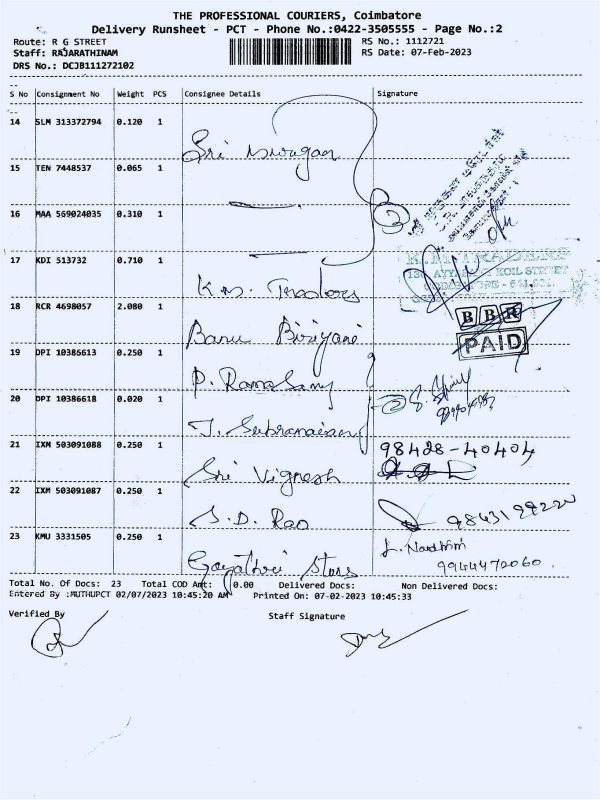 THE PROFESSIONAL COURIERS, Coimbatore
Delivery Runsheet - PCT - Phone No.:0422-3505555 - Page No.:2
Route: R G STREET RS No.: 1112721
Staff: RAJARATHINAM RS Date: 07-Feb-2023
DRS No.: DCJB111272102
S No Consignment No Weight PCS Consignee Details Signature
14 SLM 313372794 0.120 1
Sri Murugan
15 TEN 7448537 0.065 1
16 MAA 569024035 0.310 1
17 KDI 513732 0.710 1
K.M. Traders
K.M. TRADERS
KOIL STREET
18 RCR 4698057 2.080 1
Banu Biriyani
BBR
PAID
19 DPI 10386613 0.250 1
P. Ramasamy
20 DPI 10386618 0.020 1
T. Subramaniam
21 IXM 503091088 0.250 1
98428-40404
Sri Vignesh
22 IXM 503091087 0.250 1
S.D. Rao
23 KMU 3331505 0.250 1
9944470060
Gayathri Stores
Total No. Of Docs: 23 Total COD Amt: 0.00 Delivered Docs: Non Delivered Docs:
Entered By :MUTHUPCT 02/07/2023 10:45:20 AM Printed On: 07-02-2023 10:45:33
Verified By Staff Signature